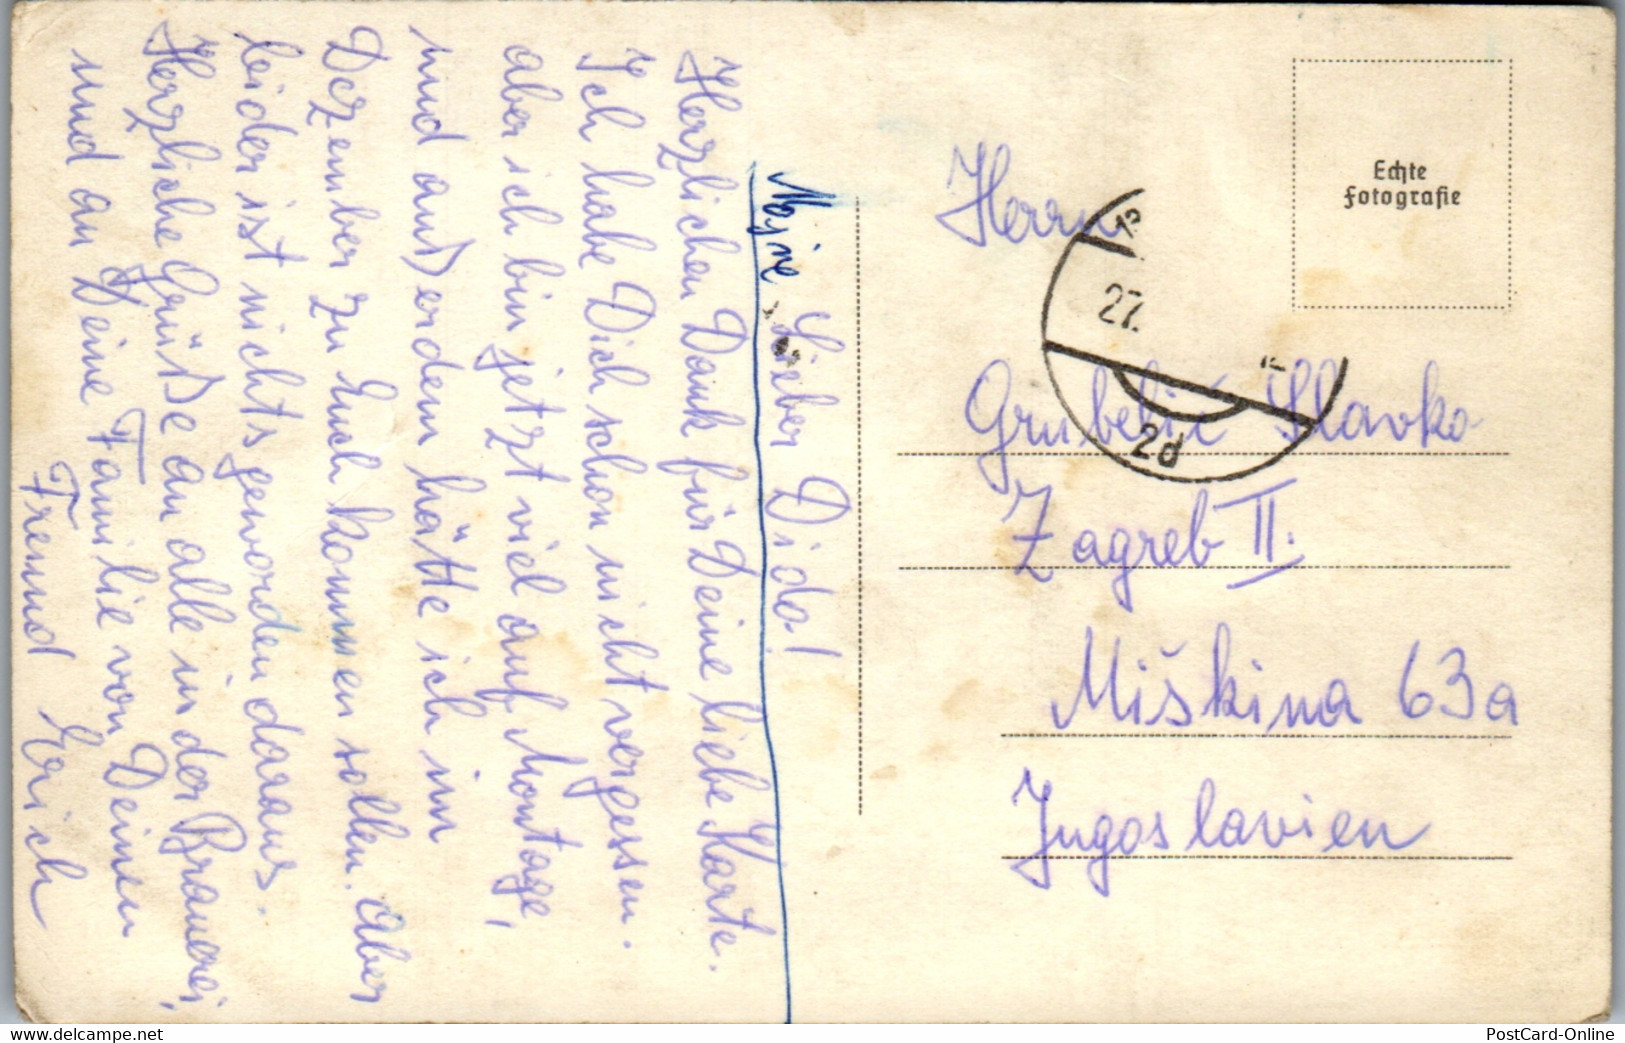 Lieber Dido!
Herzlichen Dank für Deine liebe Karte.
Ich habe Dich schon nicht vergessen.
aber ich bin jetzt viel auf Montage,
und außerdem hätte ich im
Dezember zu Euch kommen sollen. Aber
leider ist nichts geworden daraus.
Herzliche Grüße an alle in der Brauerei,
und an Deine Familie von Deinen
Freund Erich
Echte
Fotografie
27.
2d
Herrn
Grubelić Slavko
Zagreb II.
Miškina 63a
Jugoslavien
www.delcampe.net
PostCard-Online